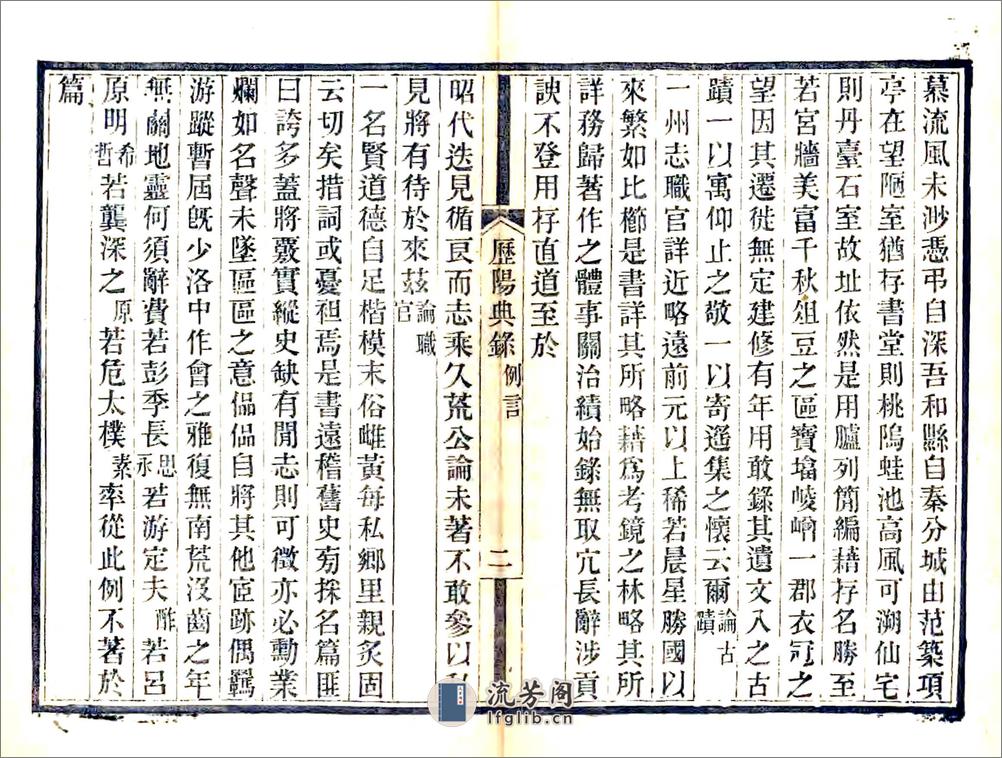 慕流風未渺憑弔自深吾和縣自秦分城由范築項
亭在望陋室猶存書堂則桃塢蛙池高風可溯仙宅
則丹臺石室故址依然是用臚列簡編藉存名勝至
若宮牆美富千秋俎豆之區寶墖崚嶒一郡衣冠之
望因其遷徙無定建修有年用敢錄其遺文入之古
蹟一以寓仰止之敬一以寄遥集之懷云爾論古蹟
一州志職官詳近略遠前元以上稀若晨星勝國以
來繁如比櫛是書詳其所略藉爲考鏡之林略其所
詳務歸著作之體事關治績始錄無取宂長辭涉貢
諛不登用存直道至於
歷陽典錄 例言 二
昭代迭見循良而志乘久荒公論未著不敢參以私
見將有待於來茲論職官
一名賢道德自足楷模末俗雌黃每私鄉里親炙固
云切矣措詞或憂袒焉是書遠稽舊史旁採名篇匪
曰誇多蓋將覈實縱史缺有閒志則可徵亦必勳業
爛如名聲未墜區區之意偘偘自將其他宦跡偶羈
游蹤暫屆旣少洛中作會之雅復無南荒沒齒之年
無關地靈何須辭費若彭季長思永若游定夫酢若呂
原明希哲若龔深之原若危太樸素率從此例不著於
篇
流芳阁
lfglib.cn